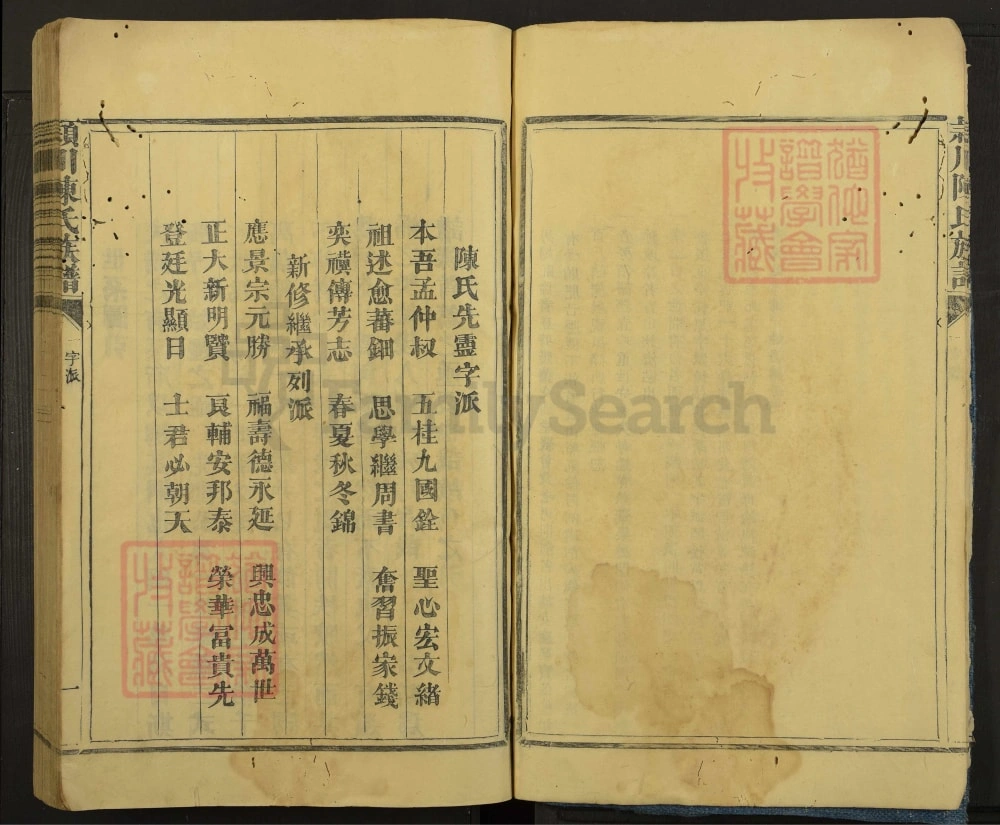 陳氏先靈字派
本吾孟仲叔 五桂九國銓 聖心宏文緒
祖述愈蕃鈿 思學繼周書 奮習振家錢
奕禩傳芳志 春夏秋冬錦
新修繼承列派
應景宗元勝 福壽德永延 興忠成萬世
正大新明賢 良輔安邦泰 榮華冨貴先
登廷光顯日 士君必朝天
潁川陳氏族譜
字派
一
FamilySearch
譜學會
收藏